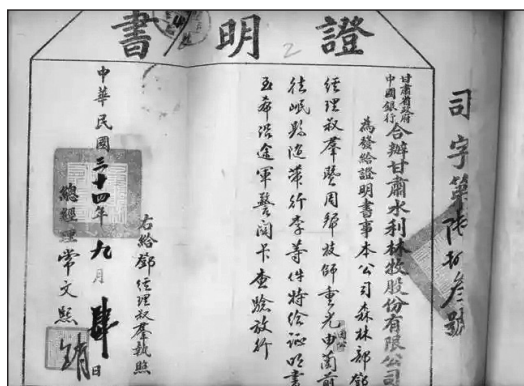 證明書
司字第陸拾叁號
甘肅省政府
中國銀行
合辦甘肅水利林牧股份有限公司
為發給證明書事本公司森林部鄧
經理叔羣暨周技師重光由蘭前
往岷縣隨帶行李等件特給证明書
至希沿途軍警関卡查驗放行
右給鄧經理叔羣執照
總經理常文熙
中華民國三十四年九月肆日